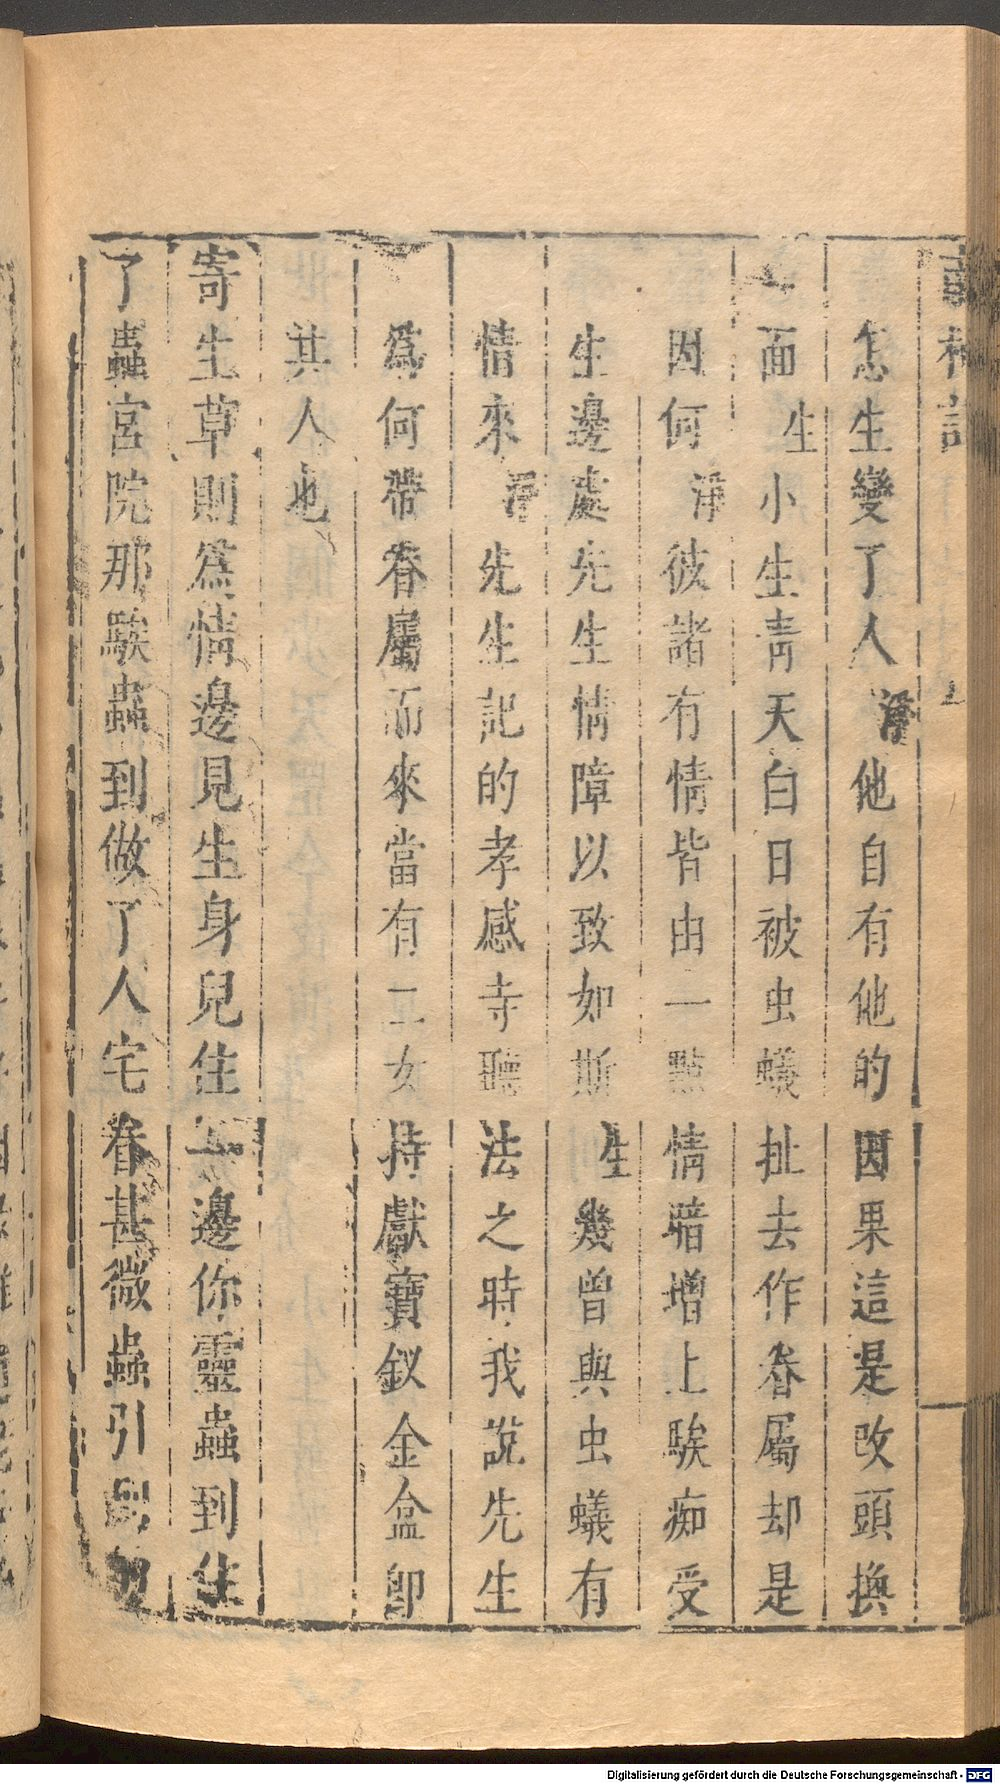 怎生變了人淨他自有他的因果這是改頭換
面生小生青天白日被虫蟻扯去作眷屬却是
因何淨彼諸有情皆由一點情暗增上騃痴受
生邊處先生情障以致如斯生幾曾與虫蟻有
情來淨先生記的孝感寺聽法之時我說先生
爲何帶眷屬而來當有二女持獻寶釵金盒卽
其人也
寄生草則爲情邊見生身兒住一邊你靈蟲到住
了蟲宮院那騃蟲到做了人宅眷甚微蟲引到
Digitalisierung gefördert durch die Deutsche Forschungsgemeinschaft - DFG